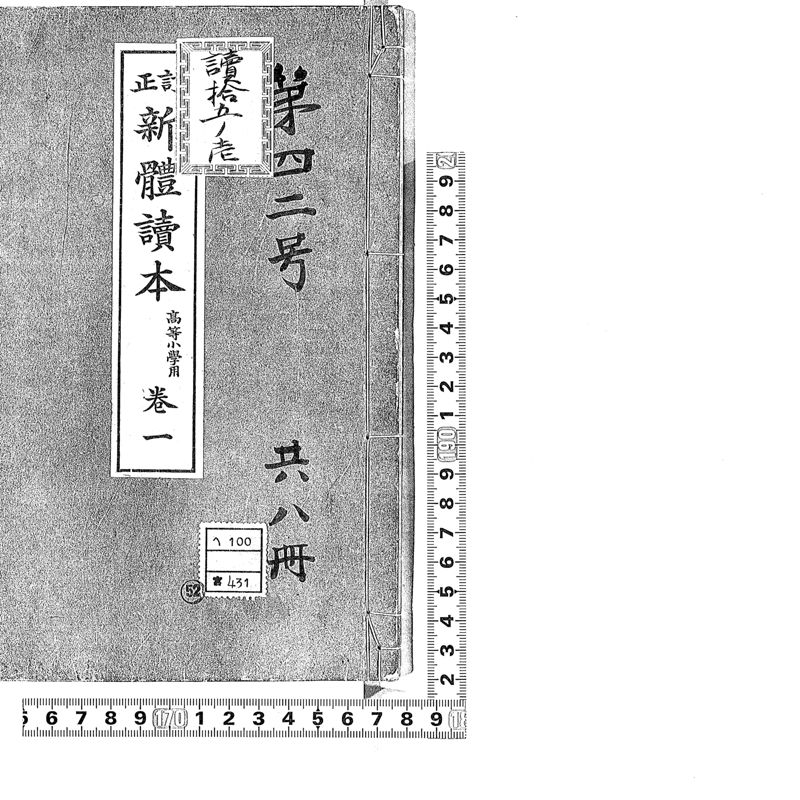 第四二号
共八冊
讀拾五ノ壱
訂正
新體讀本
高等小學用
卷一
ヘ 100
宮 431
52
9 8 7 6 5 4 3 2 1 190 9 8 7 6 5 4 3 2
6 7 8 9 170 1 2 3 4 5 6 7 8 9